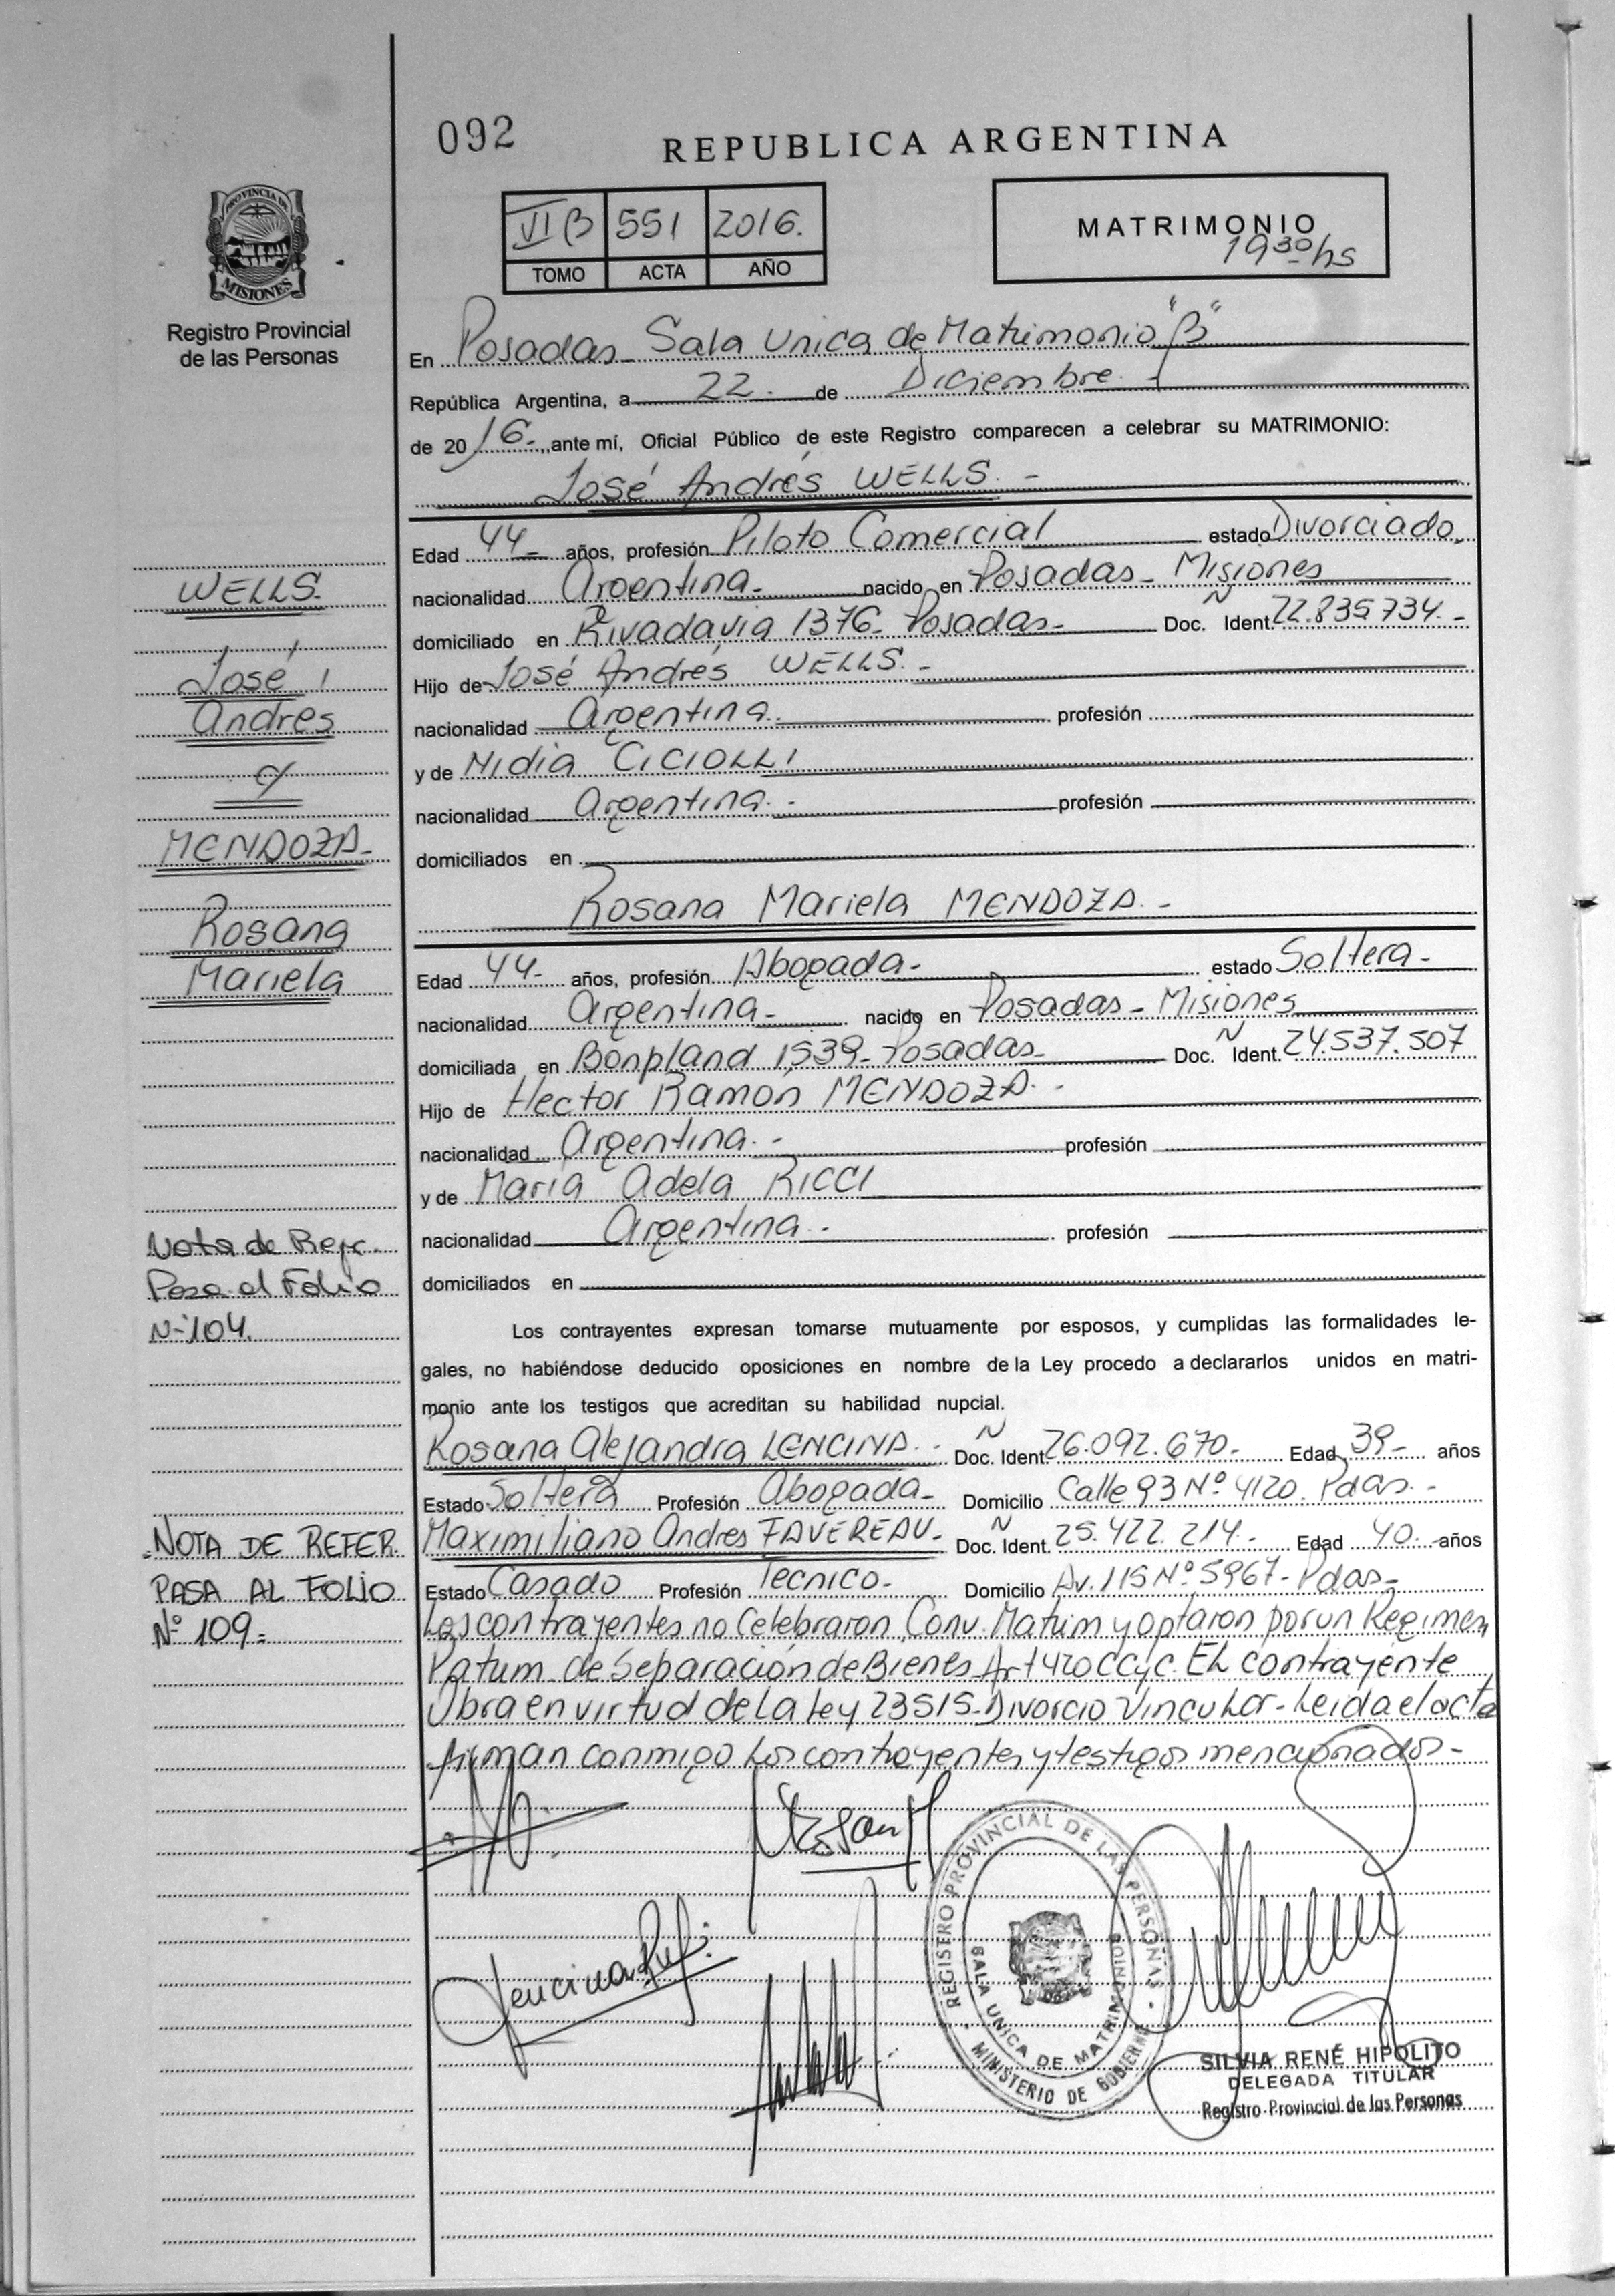 092
REPUBLICA ARGENTINA
PROVINCIA DE
MISIONES
Registro Provincial
de las Personas
VI B 551 2016.
TOMO ACTA AÑO
MATRIMONIO
19 30 hs
En Posadas - Sala Unica de Matrimonio "B"
República Argentina, a 22. de Diciembre -
de 2016.- ,,ante mí, Oficial Público de este Registro comparecen a celebrar su MATRIMONIO:
José Andrés WELLS. -
Edad 44- años, profesión Piloto Comercial estado Divorciado.
nacionalidad Argentina- nacido en Posadas - Misiones
domiciliado en Rivadavia 1376- Posadas- Doc. N Ident. 22.835734. -
Hijo de José Andrés WELLS. -
nacionalidad Argentina. profesión
y de Nidia CICIOLLI
nacionalidad Argentina. - profesión
domiciliados en
Rosana Mariela MENDOZA. -
Edad 44- años, profesión Abogada- estado Soltera-
nacionalidad Argentina- nacido en Posadas - Misiones
domiciliada en Bonpland 1539- Posadas- Doc. N Ident. 24.537.507
Hijo de Hector Ramón MENDOZA. -
nacionalidad Argentina. - profesión
y de María Adela RICCI
nacionalidad Argentina. - profesión
domiciliados en
Los contrayentes expresan tomarse mutuamente por esposos, y cumplidas las formalidades le-
gales, no habiéndose deducido oposiciones en nombre de la Ley procedo a declararlos unidos en matri-
monio ante los testigos que acreditan su habilidad nupcial.
Rosana Alejandra LENCINA. - Doc. N Ident. 26.092.670- Edad 39- años
Estado Soltera Profesión Abogada- Domicilio Calle 93 Nº 4120. Pdas. -
Maximiliano Andres FAVEREAU- Doc. N Ident. 25.422.214- Edad 40. años
Estado Casado Profesión Tecnico- Domicilio Av. 115 Nº 5967- Pdas-
Los contrayentes no Celebraron Conv. Matrim y optaron por un Regimen
Patrim. de Separación de Bienes Art 420 CCyC. EL contrayente
Obra en virtud de La Ley 23515- Divorcio Vincular- Leida el acta
firman conmigo Los contrayentes y testigos mencionados-
WELLS.
José
Andrés
c/
MENDOZA-
Rosana
Mariela
Nota de Refe.
Pasa al Folio
N- 104.
NOTA DE REFER.
PASA AL FOLIO
Nº 109-
Rosan M
Lencina
REGISERO PROVINCIAL DE LAS PERSONAS
SALA UNICA DE MATRIMONIOS
MINISTERIO DE GOBIERNO
SILVIA RENÉ HIPOLITO
DELEGADA TITULAR
Registro Provincial de las Personas